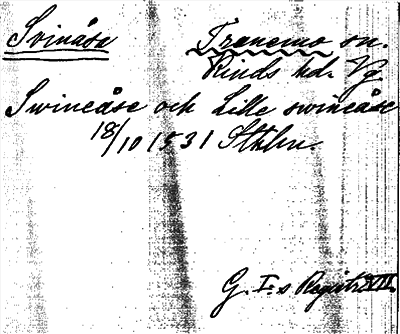 Svinåsa Tranemo sn.
Kinds hd. Vg.
Swineåse och Lille swineåse
18/10 1531 Sthlm.
G. I:s Registr. VII.